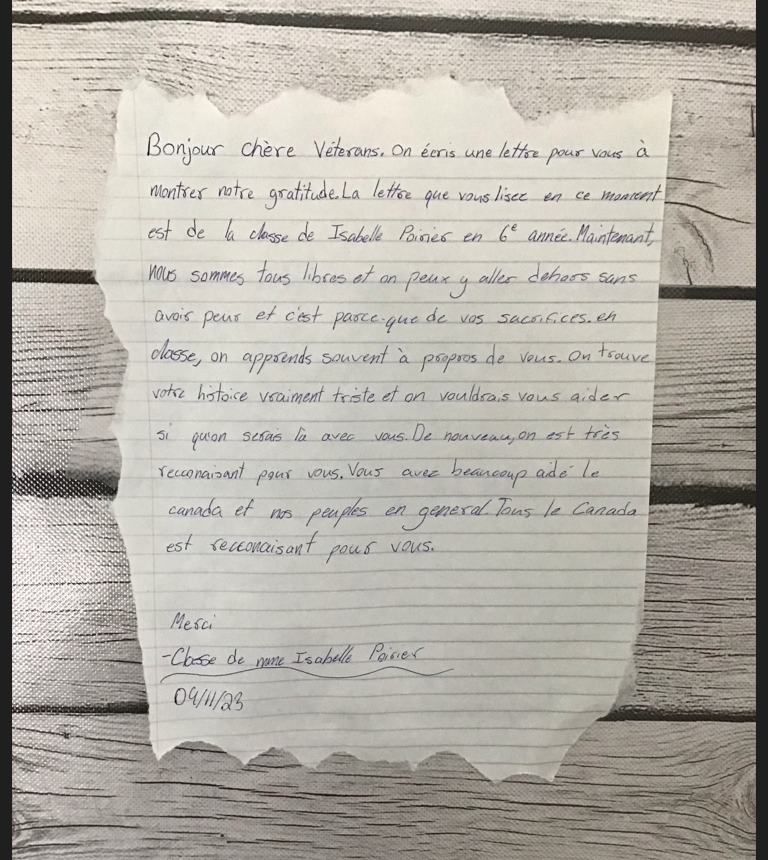 Bonjour chère Véterans. On écris une lettre pour vous à
montrer notre gratitude. La lettre que vous lisez en ce moment
est de la classe de Isabelle Poirier en 6e année. Maintenant,
nous sommes tous libres et on peux y aller dehors sans
avoir peur et c'est parce-que de vos sacrifices. en
classe, on apprends souvent à propros de vous. On trouve
votre histoire vraiment triste et on vouldrais vous aider
si qu'on serais là avec vous. De nouveau, on est très
recconaisant pour vous. Vous avez beaucoup aidé le
canada et nos peuples en general. Tous le Canada
est recconaisant pour vous.
Merci
-Classe de mme Isabelle Poirier
09/11/23